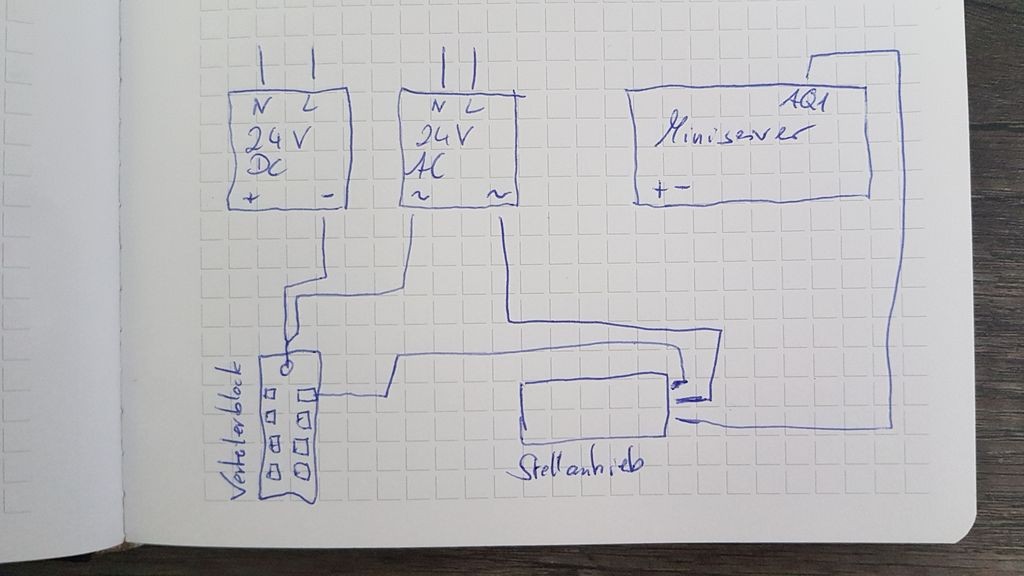 N L
24V
DC
+ -
N L
24V
AC
~ ~
AQ1
Miniserver
+ -
Verteilerblock
Stellantrieb